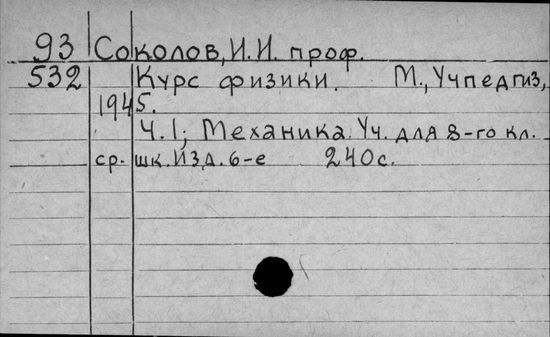 93 Соколов, И.И. проф.
532 Курс физики. М., Учпедгиз,
1945.
Ч.1; Механика. Уч. для 8-го кл.
ср. шк. Изд. 6-е 240с.